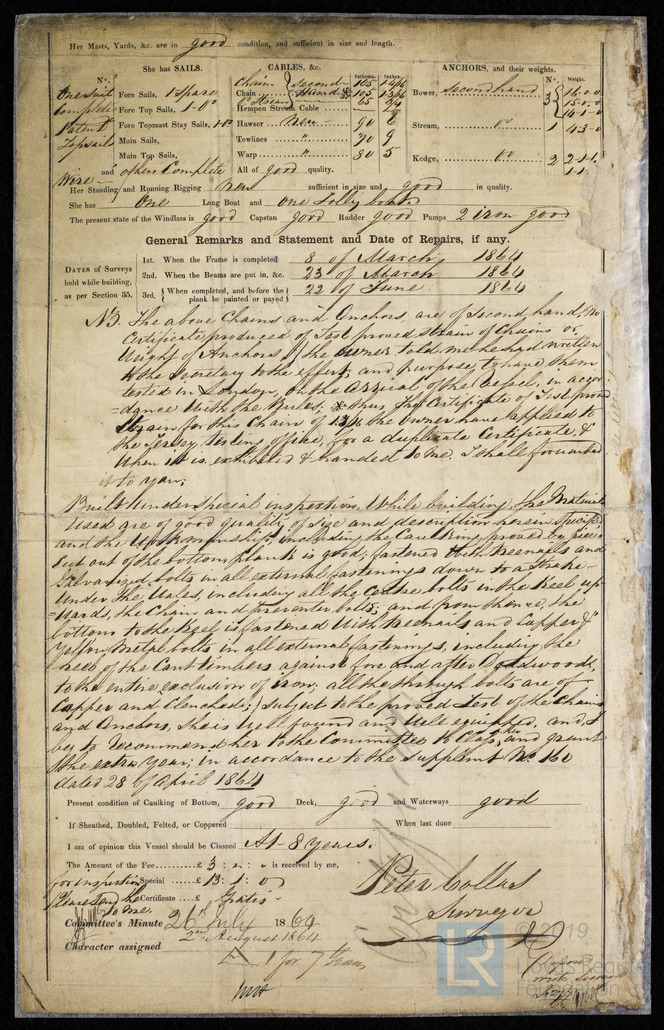 Her Masts, Yards, &c. are in good condition, and sufficient in size and length.
She has SAILS. CABLES, &c. ANCHORS, and their weights.
N°. Fathoms. Inches. N°. Weight.
One Suit Fore Sails, 1 Spare Chain Second 105 Bower, Second hand 3 16-0-0
Complete Fore Top Sails, 1-0° Chain Hand 105 15-0-0
Patent Fore Topmast Stay Sails, Hempen Stream Cable 65
Topsails Main Sails, Hawser New 90 6 Stream, 1
Main Top Sails, Towlines " 90 9
and others Complete Warp " 80 5 Kedge, 2
All of good quality.
Wire
Her Standing and Running Rigging New sufficient in size and good in quality.
She has One Long Boat and one Jolly boat
The present state of the Windlass is good Capstan good Rudder good Pumps 2 iron good
General Remarks and Statement and Date of Repairs, if any.
DATES of Surveys held while building, as per Section 35.
1st. When the Frame is completed 8 of March 1864
2nd. When the Beams are put in, &c. 23 of March 1864
3rd. { When completed, and before the plank be painted or payed } 22 of June 1864
NB. The above Chains and Anchors, are of Second hand, No
Certificate produced of Test proved strain of Chains or
Weight of Anchors, the Owner told me he had written
to the Secretary to the effect, and purpose, to have them
tested in London, on the arrival of the Vessel, in accor-
=dance With the Rules; thus The Certificate of Test proved
Strain for this Chain of the Owner have applied to
the Testing office, for a duplicate Certificate, &
When it is exhibited & handed to me. I shall forward
it to you;
Built under Special inspection While building, the Materials
Used are of good quality of Size and description herein Specified
and the Workmanship, including the Caulking, proved by
out of the bottom plank is good; fastened With treenails and
Galvanized bolts in all external fastenings down to a Strake
Under the Wales, including all the Centre bolts in the Keel up-
=wards, the Chain and preventer bolts; and from thence, the
bottom to the Keel is fastened With treenails and Copper &
Yellow Metal bolts in all external fastenings, including the
heels of the Cant timbers against fore and after Deadwoods,
to the entire exclusion of iron; all the through bolts are of
Copper and Clenched; Subject to the proved Test of the Chains
and Anchors, She is Well found and Well equipped, and I
beg to recommend her to the Committee to Class her, and grant
the extra year; in accordance to the Supplemt No. 160
dated 28 of April 1864
Present condition of Caulking of Bottom, good Deck, good and Waterways good
If Sheathed, Doubled, Felted, or Coppered When last done
I am of opinion this Vessel should be Classed A1- 8 Years.
The Amount of the Fee £ 3 : " : 0 is received by me,
for inspection Special £ 13 : 1 : 0
Please send the Certificate £ Gratis
to me.
Peter Collas
Surveyor
Committee's Minute 26th July 1864
2nd August 1864
Character assigned
1 for 7 Years
© 2019
LR
Lloyd's Register
Foundation